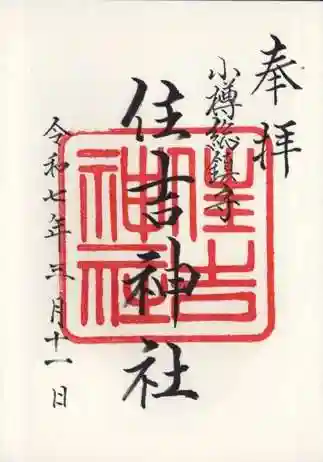 奉拝
小樽総鎮守
住吉神社
住吉神社
令和七年三月十一日